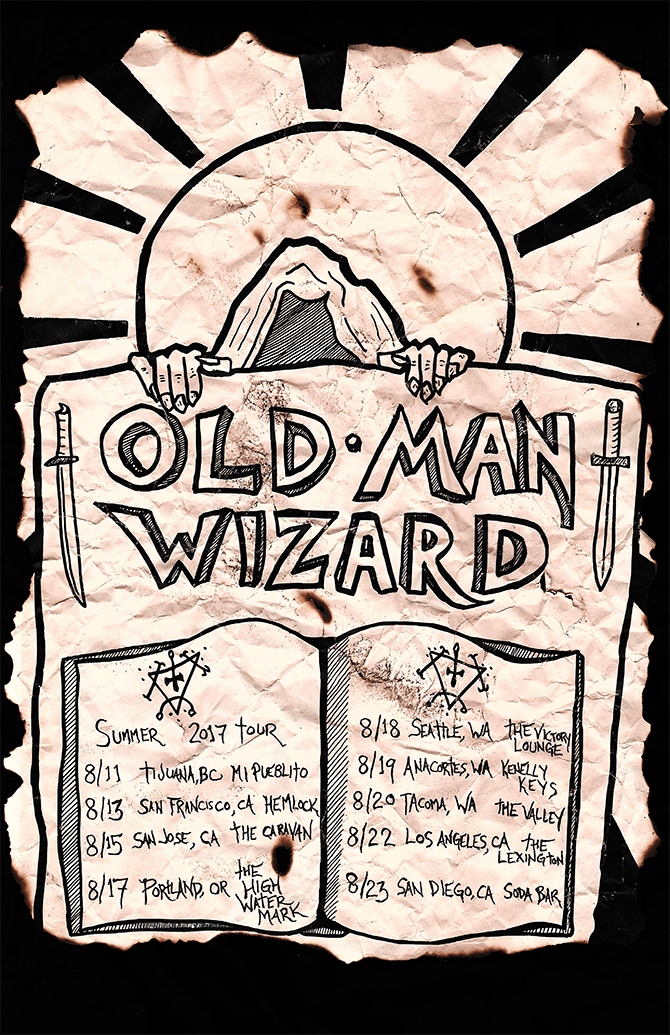 OLD·MAN
WIZARD
SUMMER 2017 TOUR
8/11 TIJUANA, BC MI PUEBLITO
8/13 SAN FRANCISCO, CA HEMLOCK
8/15 SAN JOSE, CA THE CARAVAN
8/17 PORTLAND, OR THE
HIGH
WATER
MARK
8/18 SEATTLE, WA THE VICTORY
LOUNGE
8/19 ANACORTES, WA KENELLY
KEYS
8/20 TACOMA, WA THE VALLEY
8/22 LOS ANGELES, CA THE
LEXINGTON
8/23 SAN DIEGO, CA SODA BAR